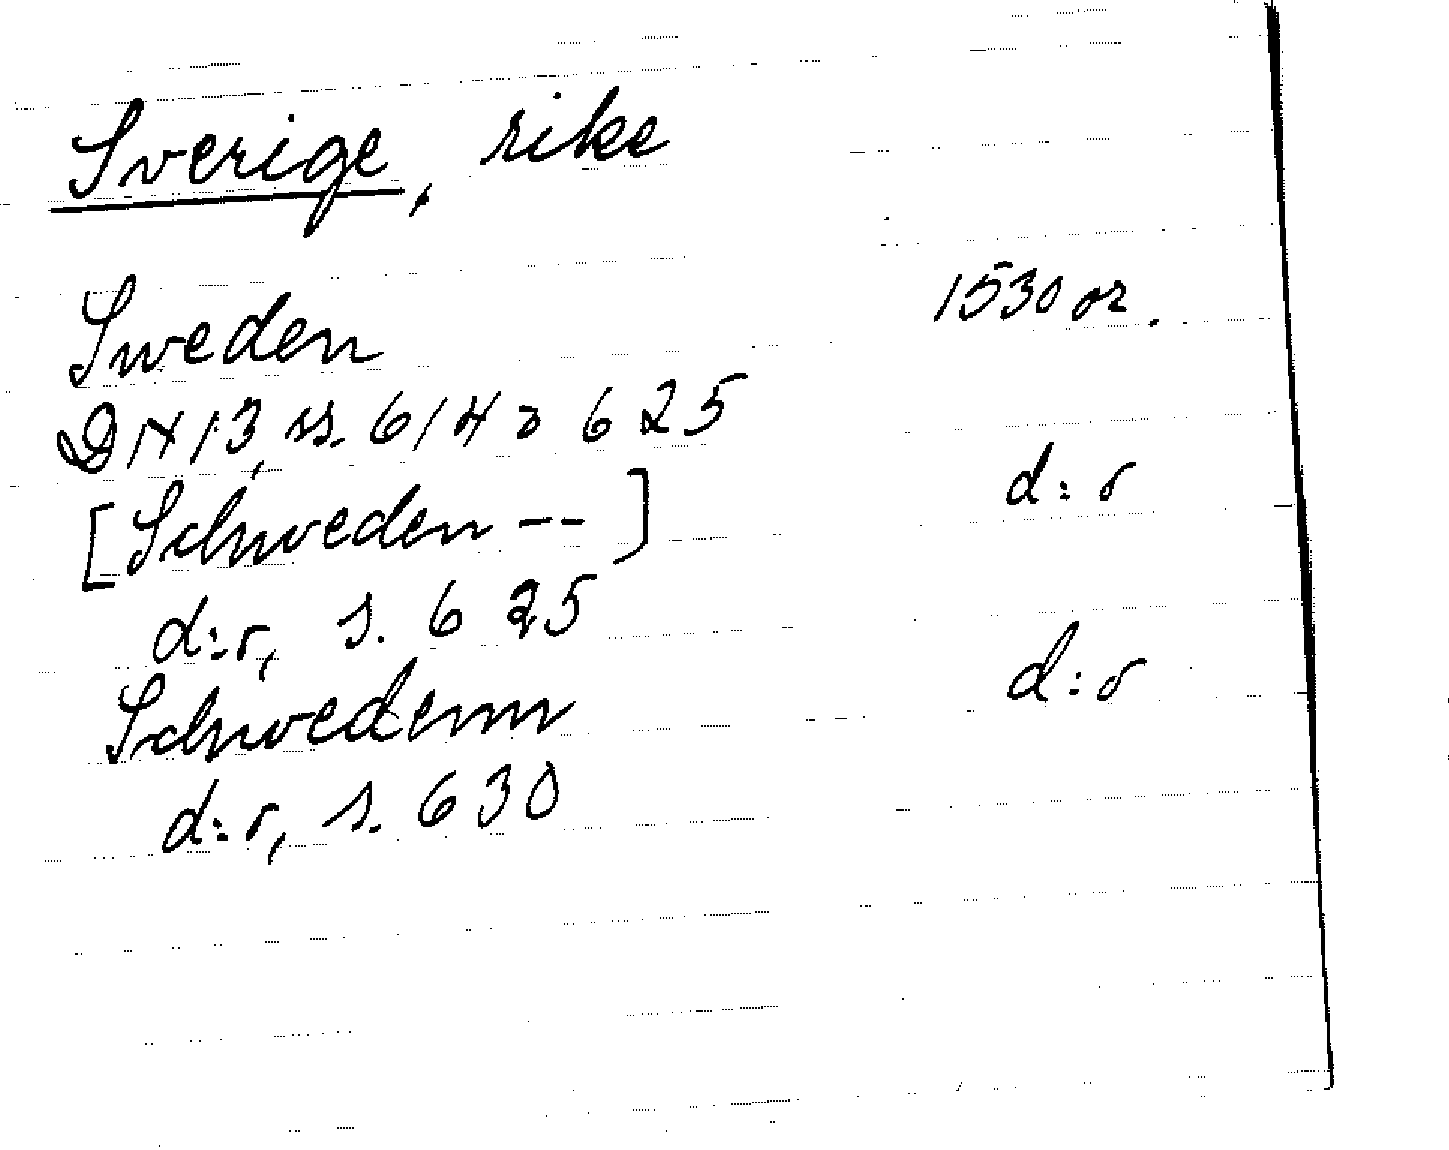 Sverige, rike
Sweden 1530 or.
DN 13, ss. 614, 625
[Schweden -- ] d:o
d:o, s. 625
Schwedenn d:o
d:o, s. 630